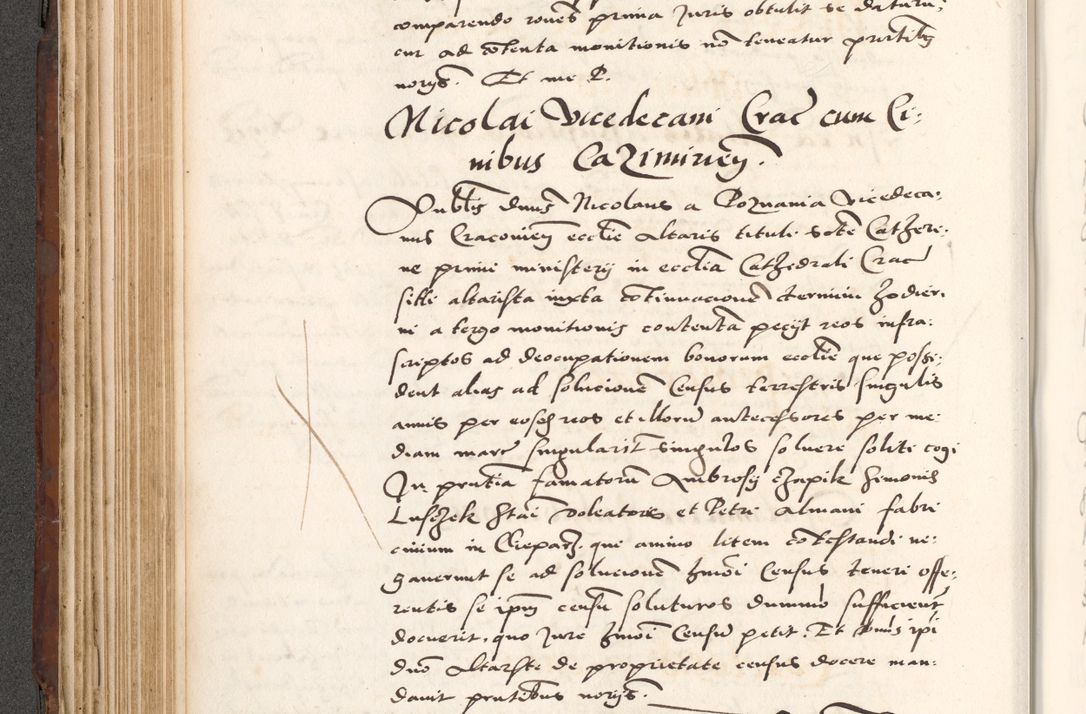 comparendo rones prima Juris obtulit se daturu,
cur ad cotenta monitionis no teneatur pntibs
norijs. Et me P.
Nicolai Vicedecani Crac cum Ci:
nibus Cazimirien.
Venblis dnus Nicolaus a Poznania Vicedeca:
nus Cracovien ecclie Altaris tituli scte Catheri:
ne primi ministerij in ecclia Cathedrali Crac
siti altarista iuxta cotinuacione termini hodier:
ni a tergo monitionis contenta pecijt reos infra:
scriptos ad deocupationem bonorum ecclie que possi:
dent alias ad solucione Census terrestris singulis
annis per eosdem reos et illoru antecessores per me:
diam marc singularit singulos solvere soliti cogi
In pntia famatoru Ambrosij Czapik Simonis
Luschek Stai Doleatoris et Petri Almani fabri
civium in Clepars. qui animo litem cotestandi ne:
gaverunt se ad solucione hmoi Census teneri offe:
rentis se ipm censu soluturos dummo sufficient
docuerit, quo Jure hmoi Censu petit. Et Dnus ipi
dno Altarste de proprietate census docere man:
davit pntibus norijs.